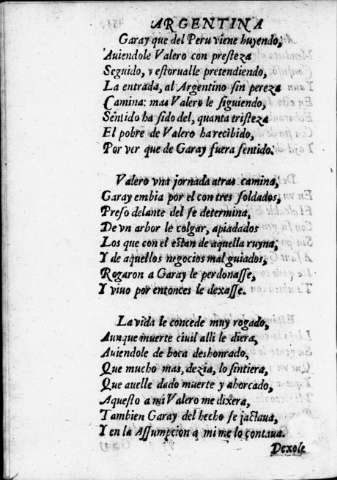 ARGENTINA
Garay que del Peru viene huyendo,
Auiendole Valero con presteza
Seguido, y estorualle pretendiendo,
La entrada, al Argentino sin pereza
Camina: mas Valero le siguiendo,
Sentido ha sido del, quanta tristeza
El pobre de Valero ha recibido,
Por ver que de Garay fuera sentido.
Valero vna jornada atras camina,
Garay embia por el con tres soldados,
Preso delante del se determina,
De vn arbor le colgar, apiadados
Los que con el estan de aquella ruyna,
Y de aquellos negocios mal guiados,
Rogaron a Garay le perdonasse,
Y viuo por entonces le dexasse.
La vida le concede muy rogado,
Aunque muerte ciuil alli le diera,
Auiendole de boca deshonrado,
Que mucho mas, dezia, lo sintiera,
Que auelle dado muerte y ahorcado,
Aquesto a mi Valero me dixera,
Tambien Garay del hecho se jactaua,
Y en la Assumpcion a mi me lo contaua.
Dexole